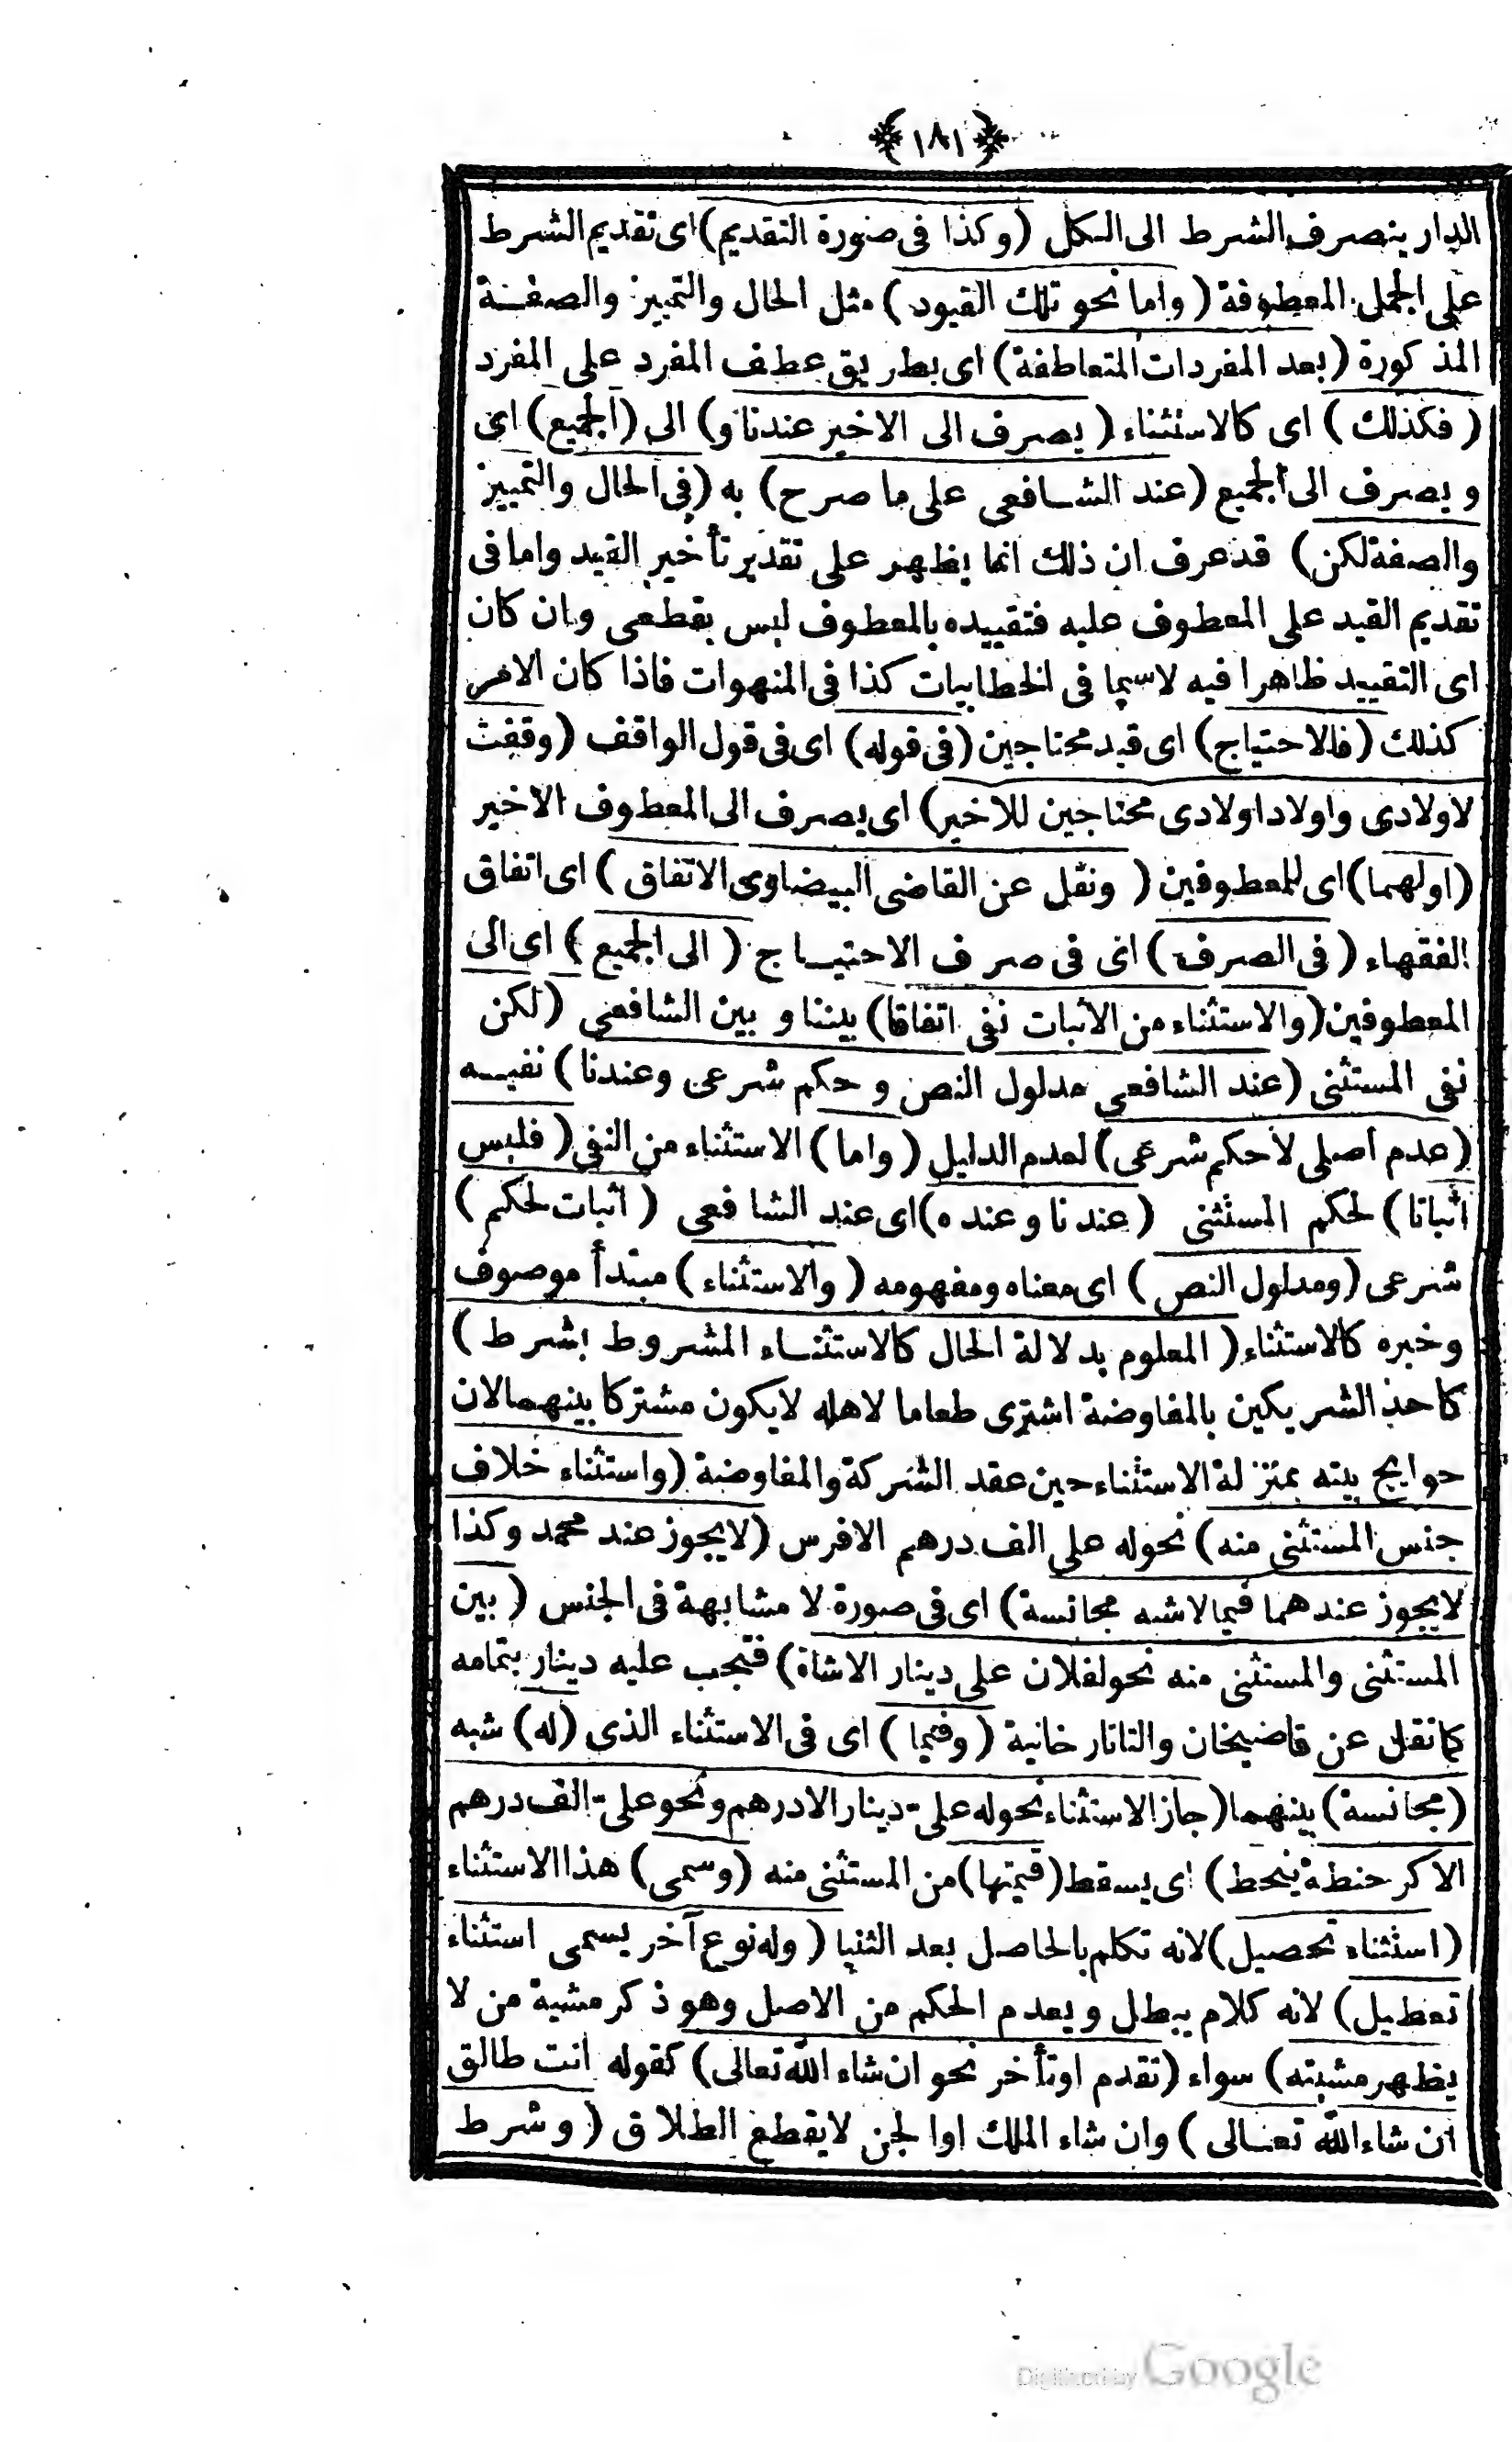 ﴿١٨١﴾
الدار ينصرف الشرط الى الكل (وكذا فى صورة التقديم) اى تقديم الشرط
على الجمل المعطوفة (واما نحو تلك القيود) مثل الحال والتمييز والصفة
المذكورة (بعد المفردات المتعاطفة) اى بطريق عطف المفرد على المفرد
(فكذلك) اى كالاستثناء (يصرف الى الاخير عندنا و) الى (الجميع) اى
ويصرف الى الجميع (عند الشافعى على ما صرح) به (فى الحال والتمييز
والصفة لكن) قد عرف ان ذلك انما يظهر على تقدير تأخير القيد واما فى
تقديم القيد على المعطوف عليه فتقييده بالمعطوف ليس بقطعى وان كان
اى التقييد ظاهرا فيه لاسيما فى الخطابيات كذا فى المنهوات فاذا كان الامر
كذلك (فالاحتياج) اى قيد محتاجين (فى قوله) اى فى قول الواقف (وقفت
لاولادى واولاد اولادى محتاجين للاخير) اى يصرف الى المعطوف الاخير
(اولهما) اى للمعطوفين (ونقل عن القاضى البيضاوى الاتفاق) اى اتفاق
الفقهاء (فى الصرف) اى فى صرف الاحتياج (الى الجميع) اى الى
المعطوفين (والاستثناء من الاثبات نفى اتفاقا) بيننا وبين الشافعى (لكن
نفى المستثنى (عند الشافعى مدلول النص وحكم شرعى وعندنا) نفيه
(عدم اصلى لا حكم شرعى) لعدم الدليل (واما) الاستثناء من النفى (فليس
اثباتا) لحكم المستثنى (عندنا وعنده) اى عند الشافعى (اثبات لحكم)
شرعى (ومدلول النص) اى معناه ومفهومه (والاستثناء) مبتدأ موصوف
وخبره كالاستثناء (المعلوم بدلالة الحال كالاستثناء المشروط بشرط)
كاحد الشريكين بالمفاوضة اشترى طعاما لاهله لايكون مشتركا بينهما لان
حوايج بيته بمنزلة الاستثناء حين عقد الشركة والمفاوضة (واستثناء خلاف
جنس المستثنى منه) نحوله على الف درهم الافرس (لايجوز عند محمد وكذا
لايجوز عندهما فيما لاشبه مجانسة) اى فى صورة لا مشابهة فى الجنس (بين
المستثنى والمستثنى منه نحو لفلان على دينار الاشاة) فتجب عليه دينار بتمامه
كما نقل عن قاضيخان والتاتار خانية (وفيما) اى فى الاستثناء الذى (له) شبه
(مجانسة) بينهما (جاز الاستثناء نحوله على دينار الادرهم ونحو على الف درهم
الاكر حنطة ينحط) اى يسقط (قيمتها) من المستثنى منه (وسمى) هذا الاستثناء
(استثناء تحصيل) لانه تكلم بالحاصل بعد الثنيا (وله نوع آخر يسمى استثناء
تعطيل) لانه كلام يبطل ويعدم الحكم من الاصل وهو ذكر مشية من لا
يظهر مشيته) سواء (تقدم اوتأخر نحو ان شاء الله تعالى) كقوله انت طالق
ان شاء الله تعالى) وان شاء الملك او الجن لايقطع الطلاق (وشرط
Digitized by Google